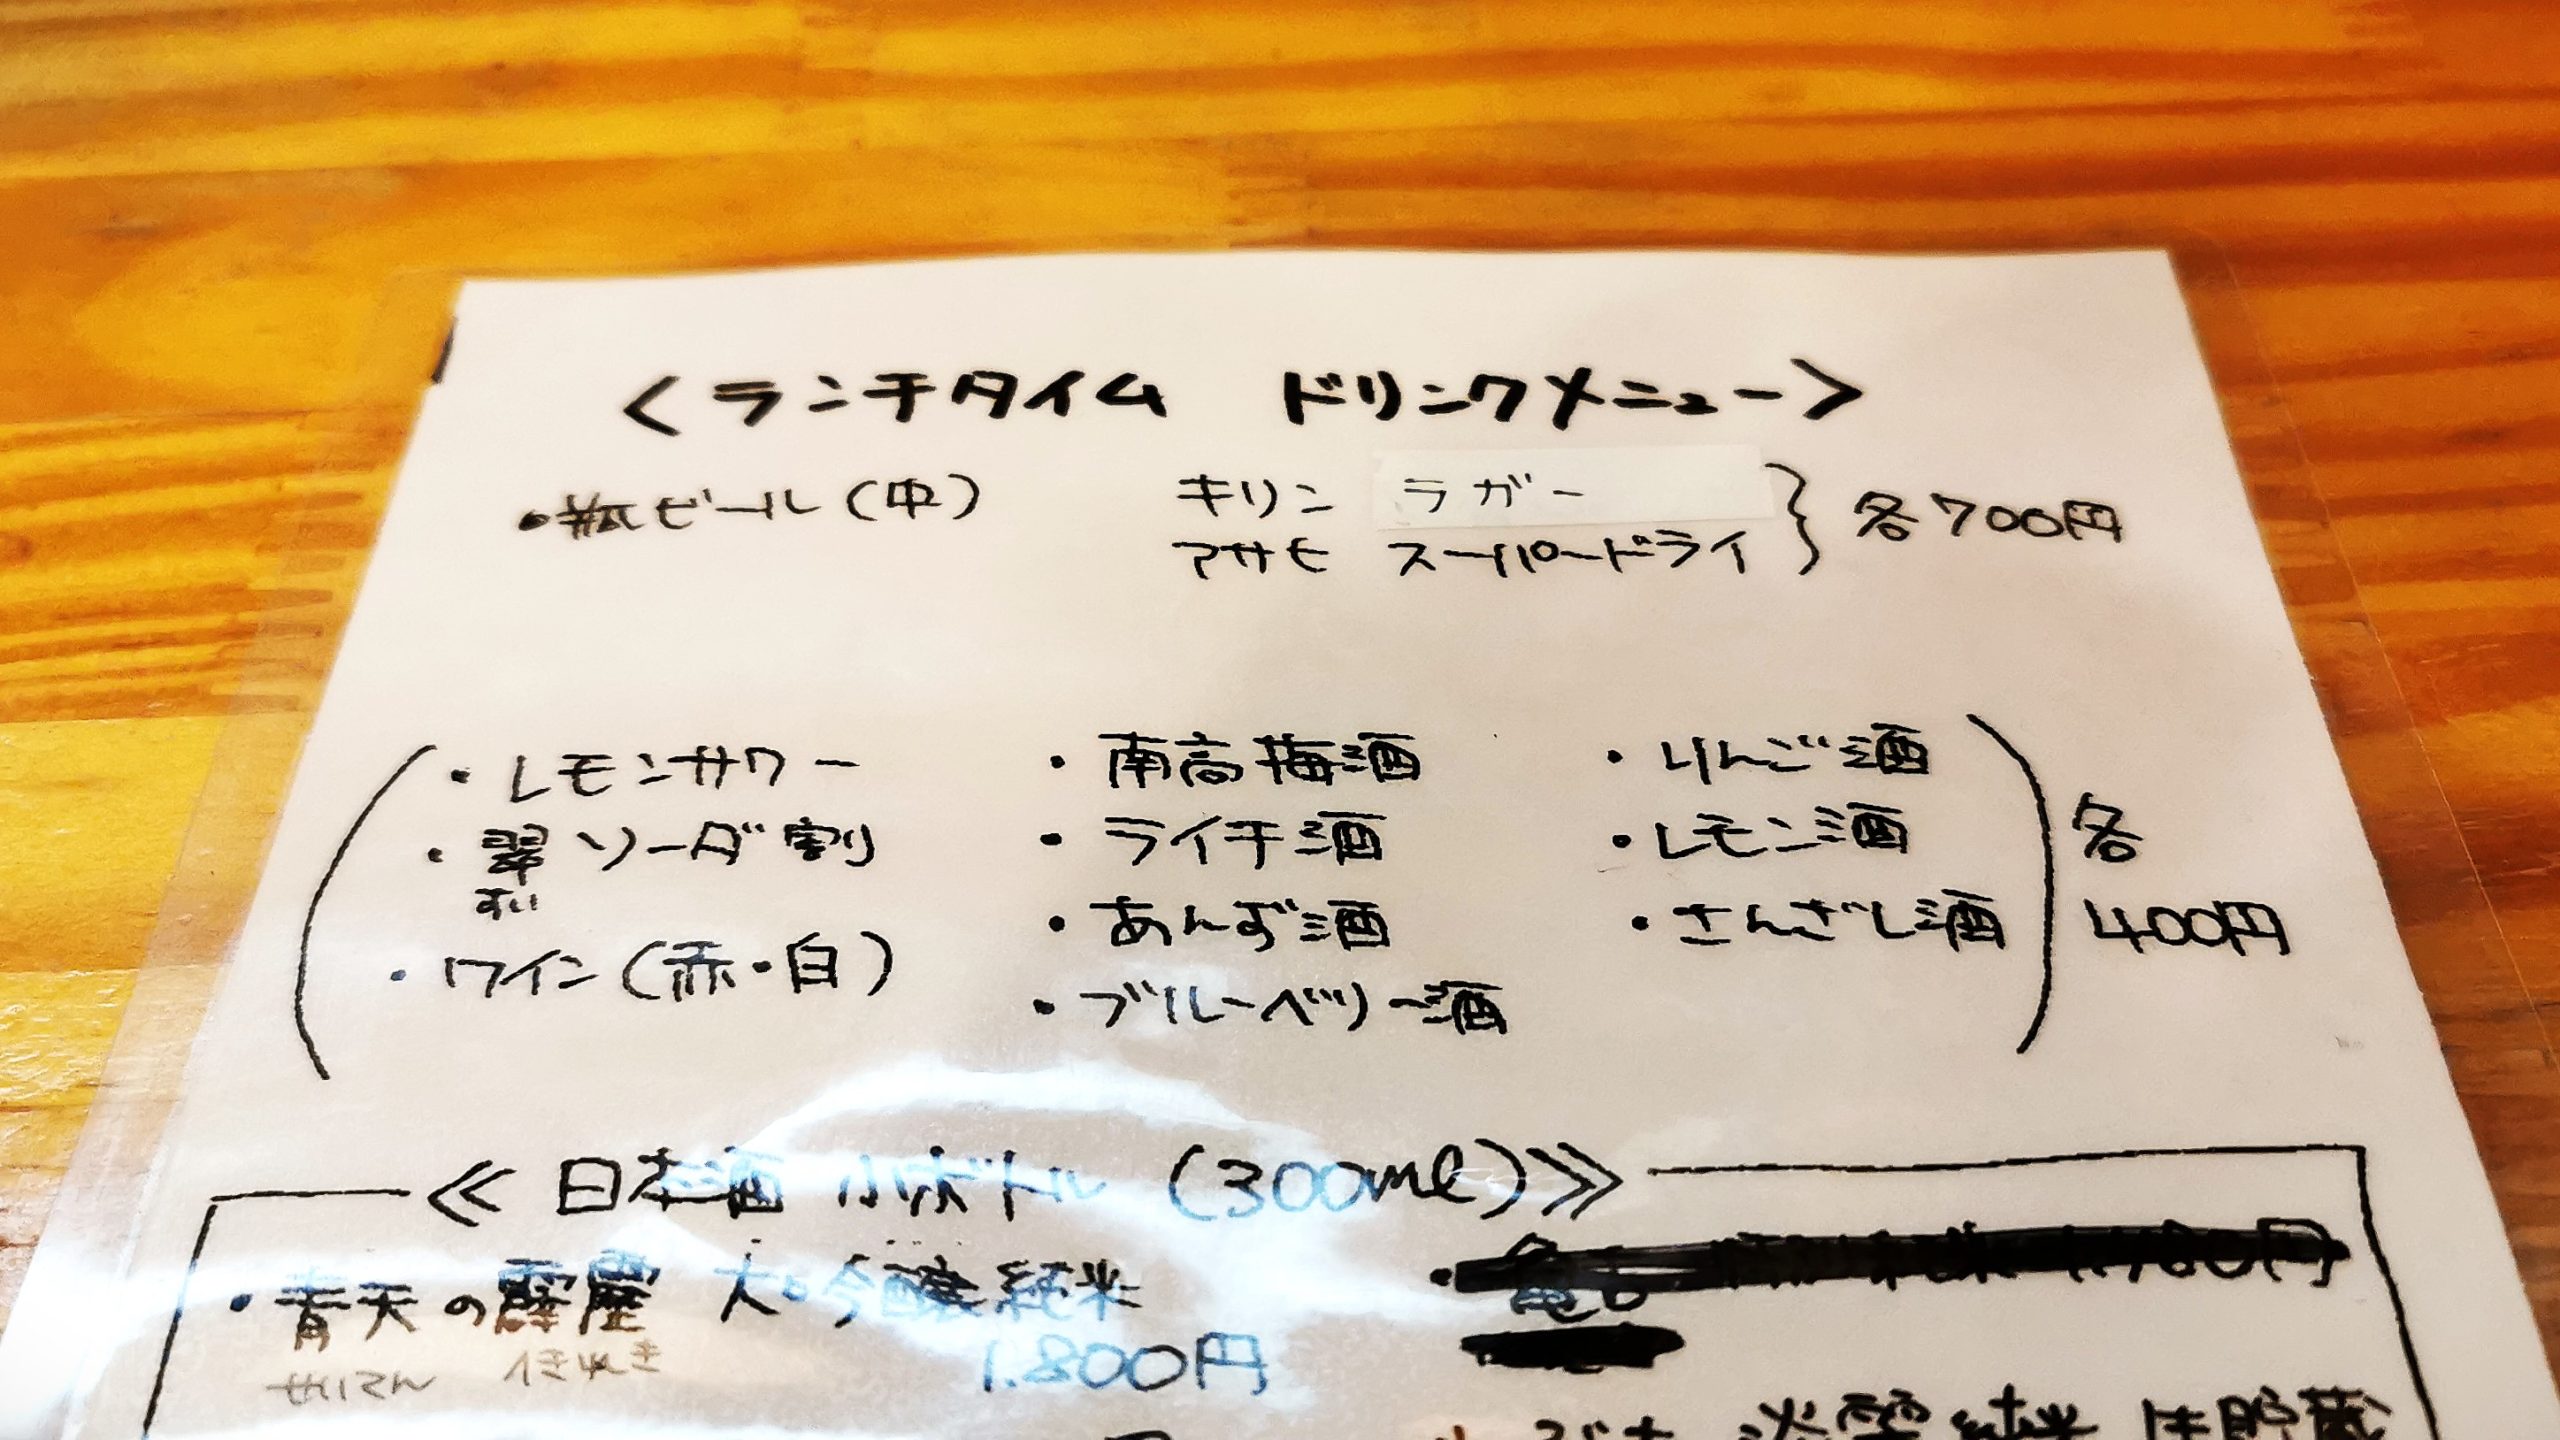 <ランチタイム ドリンクメニュー>
・瓶ビール(中) キリン ラガー
アサヒ スーパードライ
各700円
・レモンサワー ・南高梅酒 ・りんご酒
・翠ソーダ割 ・ライチ酒 ・レモン酒 各
すい
・あんず酒 ・さんざし酒 400円
・ワイン(赤・白) ・ブルーベリー酒
≪日本酒 小ボトル (300ml)≫
・青天の霹靂 大吟醸純米
せいてん へきれき
1.800円
純米 生貯蔵